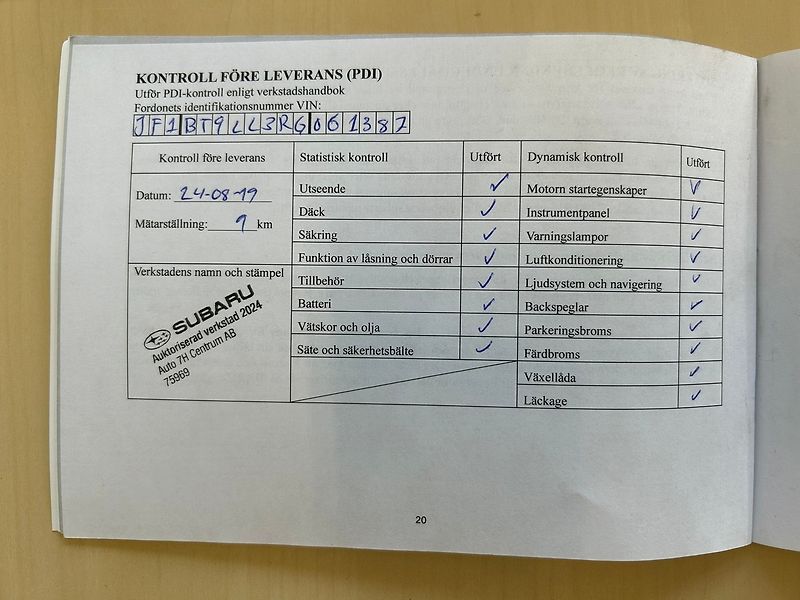 KONTROLL FÖRE LEVERANS (PDI)
Utför PDI-kontroll enligt verkstadshandbok
Fordonets identifikationsnummer VIN:
JF1BT9LL3RG061387
Kontroll före leverans Statistisk kontroll Utfört Dynamisk kontroll Utfört
Datum: 24-08-19
Mätarställning: 9 km
Verkstadens namn och stämpel
SUBARU
Auktoriserad verkstad 2024
Auto 7H Centrum AB
75969
Utseende ✓ Motorn startegenskaper ✓
Däck ✓ Instrumentpanel ✓
Säkring ✓ Varningslampor ✓
Funktion av låsning och dörrar ✓ Luftkonditionering ✓
Tillbehör ✓ Ljudsystem och navigering ✓
Batteri ✓ Backspeglar ✓
Vätskor och olja ✓ Parkeringsbroms ✓
Säte och säkerhetsbälte ✓ Färdbroms ✓
Växellåda ✓
Läckage ✓
20